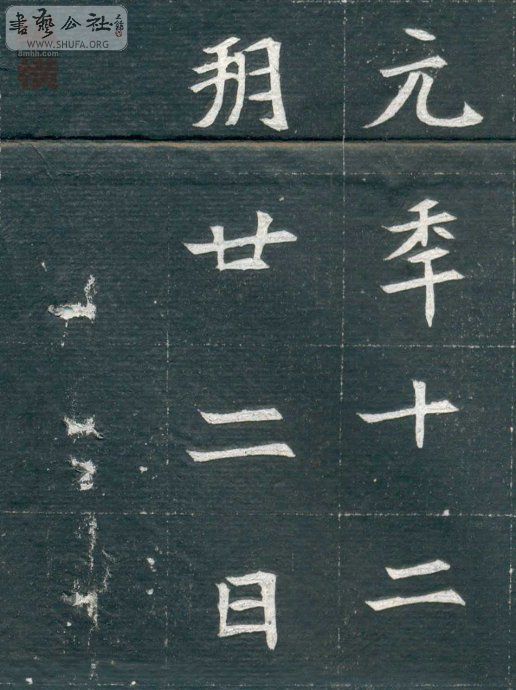 書藝公社
WWW.SHUFA.ORG
8mhh.com
元秊十二
廿二日